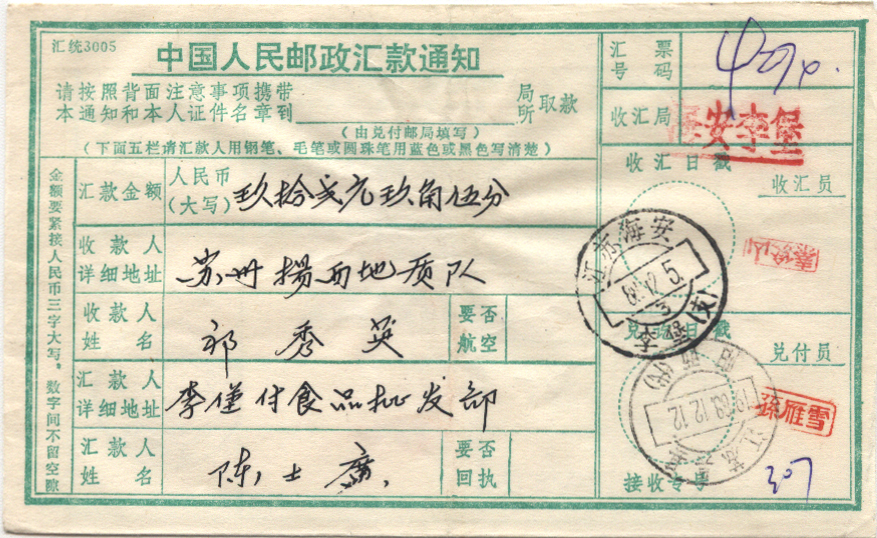 汇统3005
中国人民邮政汇款通知
请按照背面注意事项携带
本通知和本人证件名章到
局所取款
(由兑付邮局填写)
(下面五栏请汇款人用钢笔、毛笔或圆珠笔用蓝色或黑色写清楚)
金额要紧接人民币三字大写,数字间不留空隙
汇款金额 人民币(大写) 玖拾贰元玖角伍分
收款人详细地址 苏州
地质队
收款人姓名 祁秀英
要否航空
汇款人详细地址 李堡
食品批发部
汇款人姓名 陈士广
要否回执
汇票号码
收汇局
安李堡
收汇日戳
收汇员
江苏海安
李堡(支)
兑付日戳
兑付员
孫雁雪
1983.12.12
接收专号
307